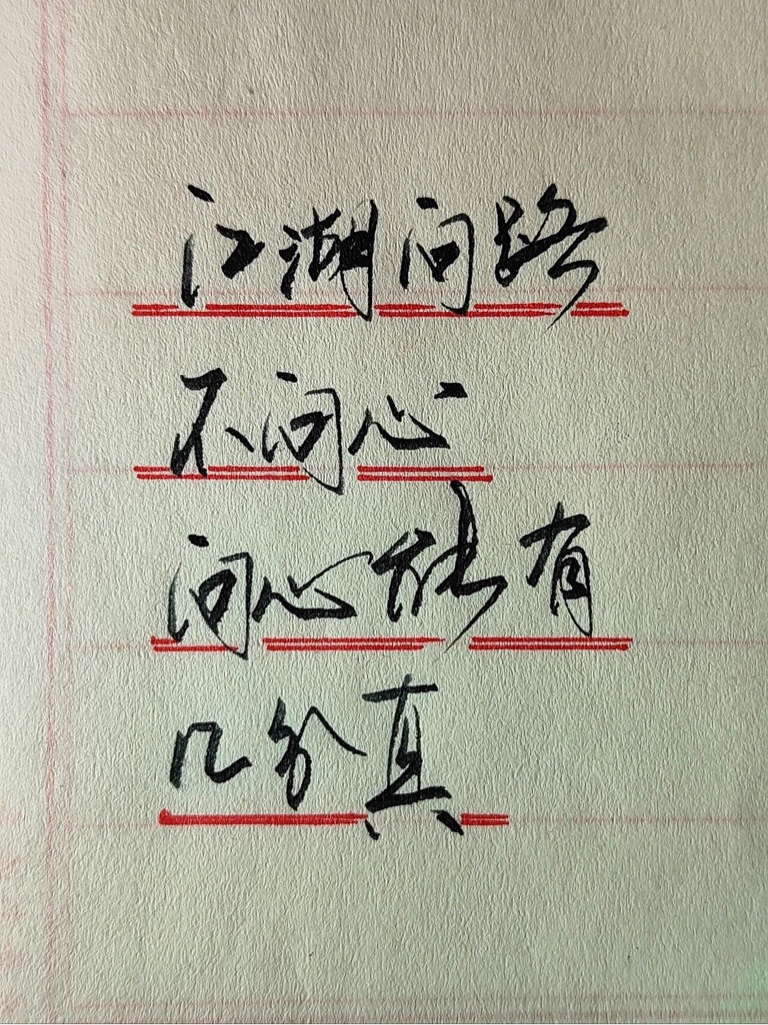 江湖问路
不问心
问心能有
几分真